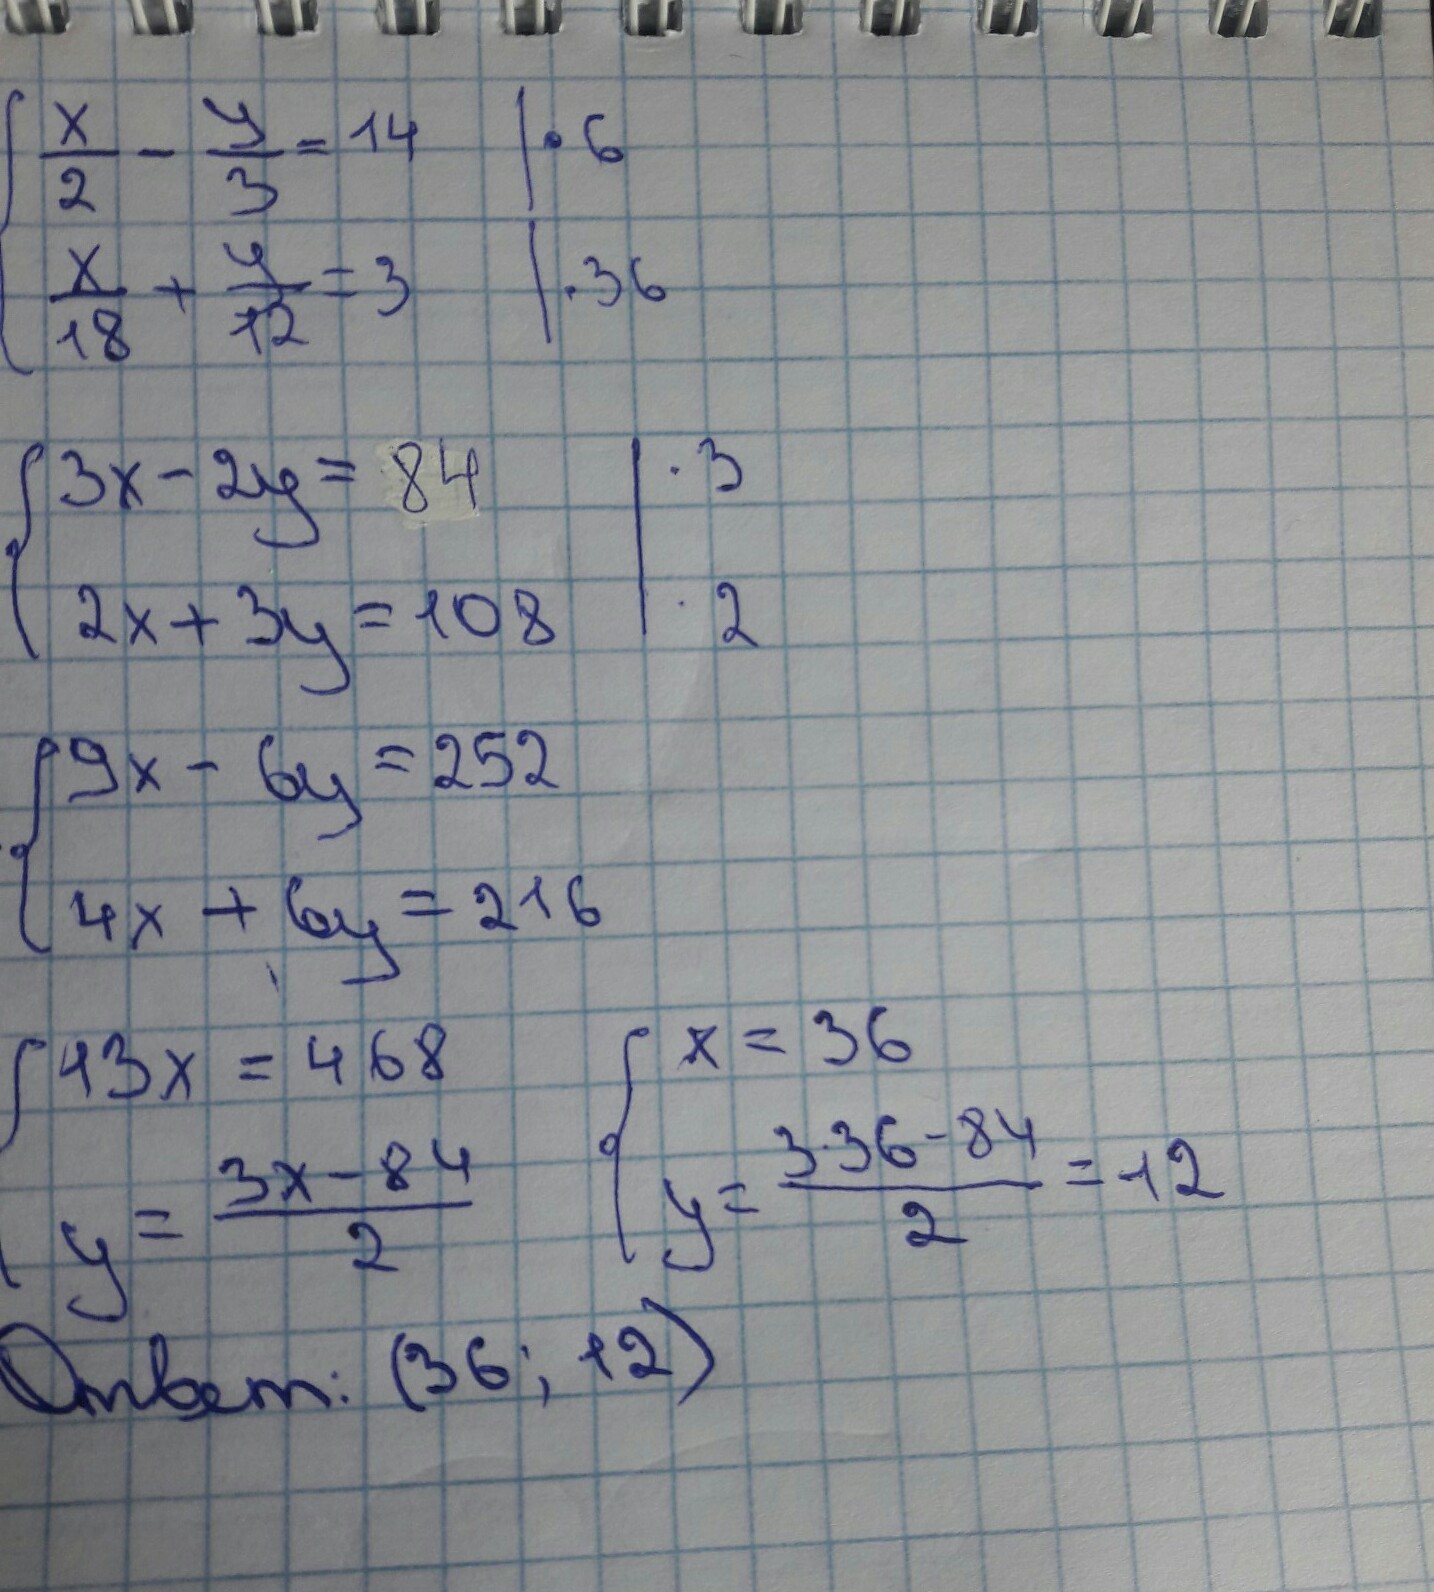 x/2 - y/3 = 14 | · 6
x/18 + y/12 = 3 | · 36
3x - 2y = 84 | · 3
2x + 3y = 108 | · 2
9x - 6y = 252
4x + 6y = 216
13x = 468 x = 36
y = (3x - 84)/2 y = (3·36 - 84)/2 = 12
Ответ: (36; 12)